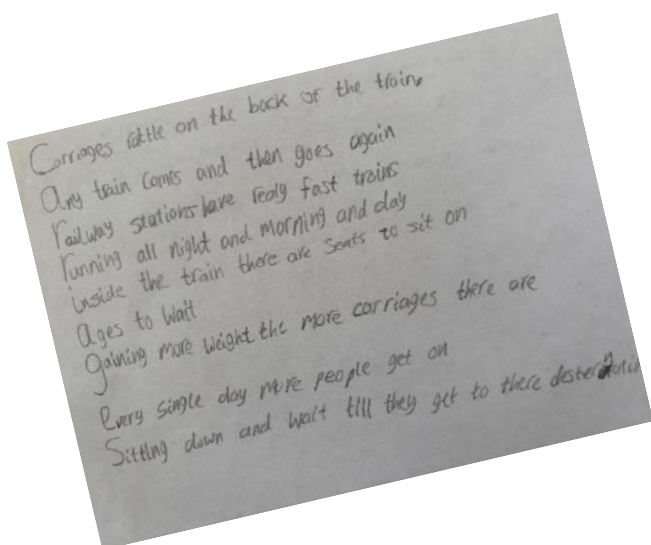 Carriages rattle on the back of the train.
Any train comes and then goes again
railway stations have realy fast trains
running all night and morning and day
inside the train there are seats to sit on
ages to wait
gaining more weight the more carriages there are
Every single day more people get on
Sitting down and wait till they get to there